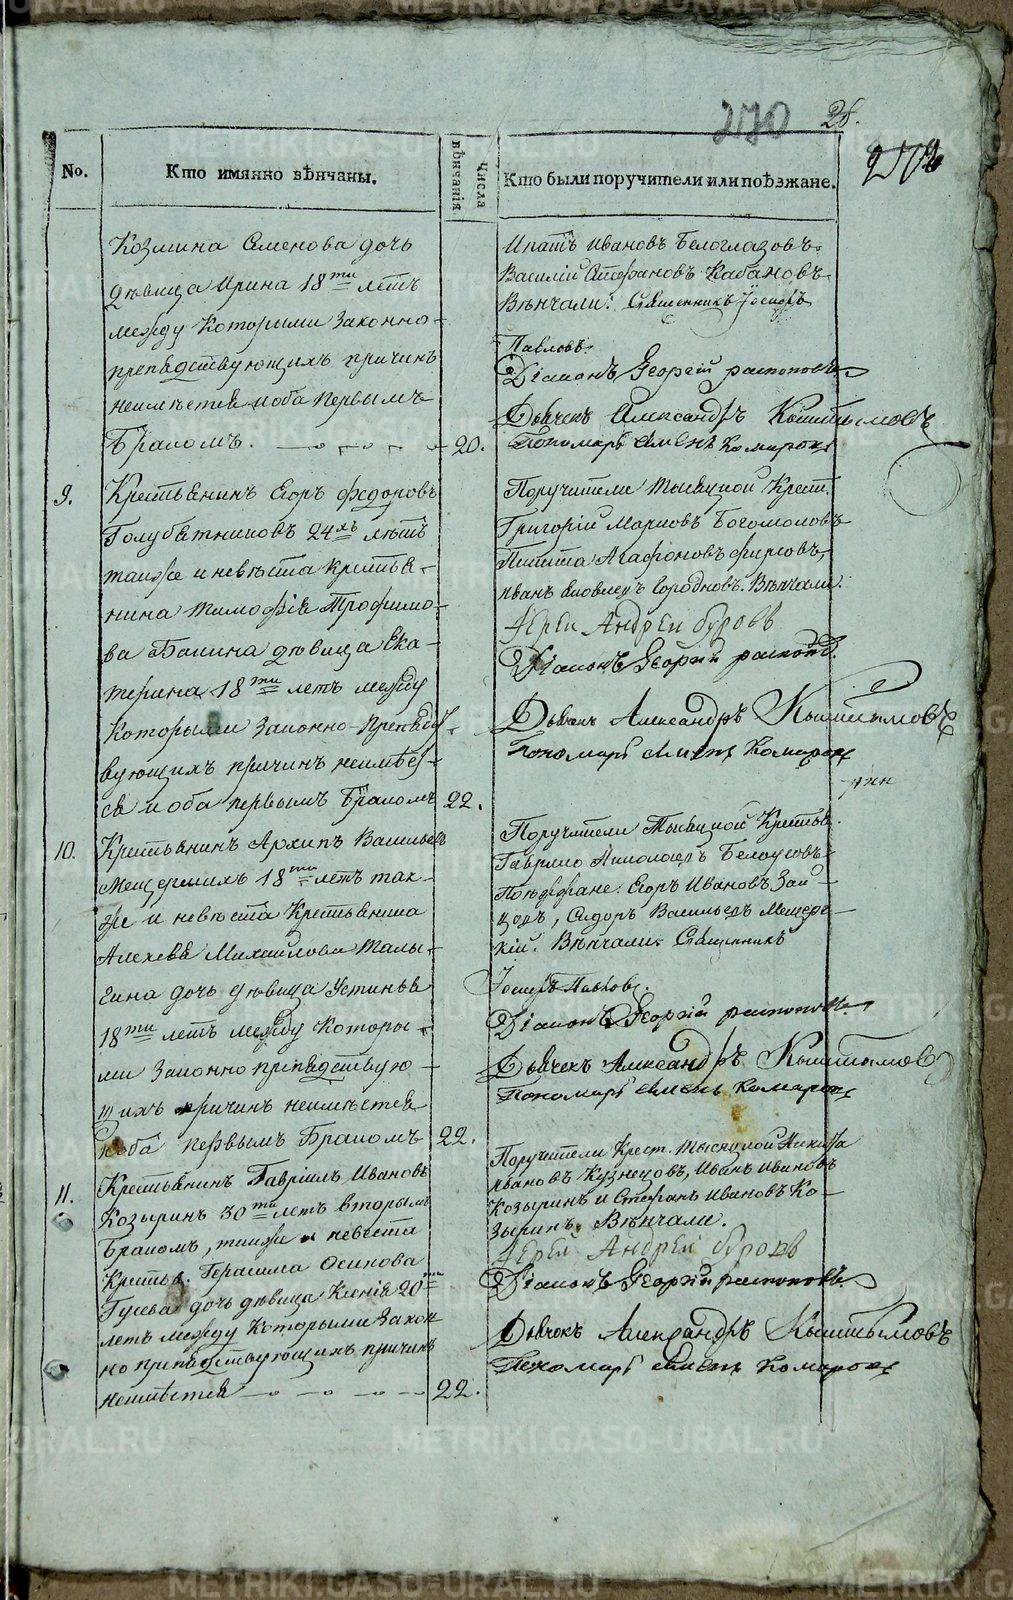 270 28.
No. Кто имянно вѣнчаны. Числа вѣнчанія Кто были поручители или поѣзжане.
Козмина Семенова дочь
дѣвица Ирина 18ти летъ
между Которыми Законно-
препядствующихъ причинъ
неимѣется иоба Первымъ
Бракомъ. 20.
Ипатъ Ивановъ Белоглазовъ.
Василій Стефановъ Кабановъ
Вѣнчали: Священникъ Іосифъ
Павловъ.
Діаконъ Георгій
Дьячекъ Александръ Кыштымовъ
Пономарь Семенъ Комаровъ
9. Крестьянинъ Егоръ Федоровъ
Голубятниковъ 24хъ летъ
также и невѣста Крестья-
нина Тимофѣя Трофимо-
ва Бакина дѣвица Ека-
терина 18ти летъ между
Которыми Законно-Препядст
вующихъ причинъ неимѣет-
ся и оба первымъ Бракомъ 22.
Поручители Тысяцкой Крест.
Григорій Марковъ Богомоловъ
Никита Агафоновъ Фирсовъ,
Иванъ Яковлевъ Вѣнчали:
Іерей Андрей Суровъ
Діаконъ Георгій
Дьячекъ Александръ Кыштымовъ
Пономарь Семенъ Комаровъ
10. Крестьянинъ Архипъ Васильевъ
Мещерскихъ 18ти летъ так-
же и невѣста Крестьянина
Алексѣя Михайлова Талы-
гина дочь дѣвица Устинья
18ти летъ между Которы-
ми Законно препядствую-
щихъ причинъ неимѣется
иоба первымъ Бракомъ 22.
Поручители Тысяцкой Крестья.
Гаврило Николаевъ Белоусовъ
Поѣзжане: Егоръ Ивановъ Зай-
цовъ, Сидоръ Васильевъ Мещерс-
кій. Вѣнчали: Священникъ
Іосифъ Павловъ.
Діаконъ Георгій
Дьячекъ Александръ Кыштымовъ
Пономарь Семенъ Комаровъ
11. Крестьянинъ Гавріилъ Ивановъ
Козыринъ 30ти летъ вторымъ
Бракомъ, также и невеста
Крестья. Герасима Осипова
Гусева дочь дѣвица Ксенія 20ти
летъ между Которыми Закон
но препядствующихъ причинъ
неимѣется 22.
Поручители Крест. Тысяцкой Никита
Ивановъ Кузнецовъ, Иванъ Ивановъ
Козыринъ и Стефанъ Ивановъ Ко-
зыринъ. Вѣнчали.
Іерей Андрей Суровъ
Діаконъ Георгій
Дьячокъ Александръ Кыштымовъ
Пономарь Семенъ Комаровъ
METRIKI.GASO-URAL.RU